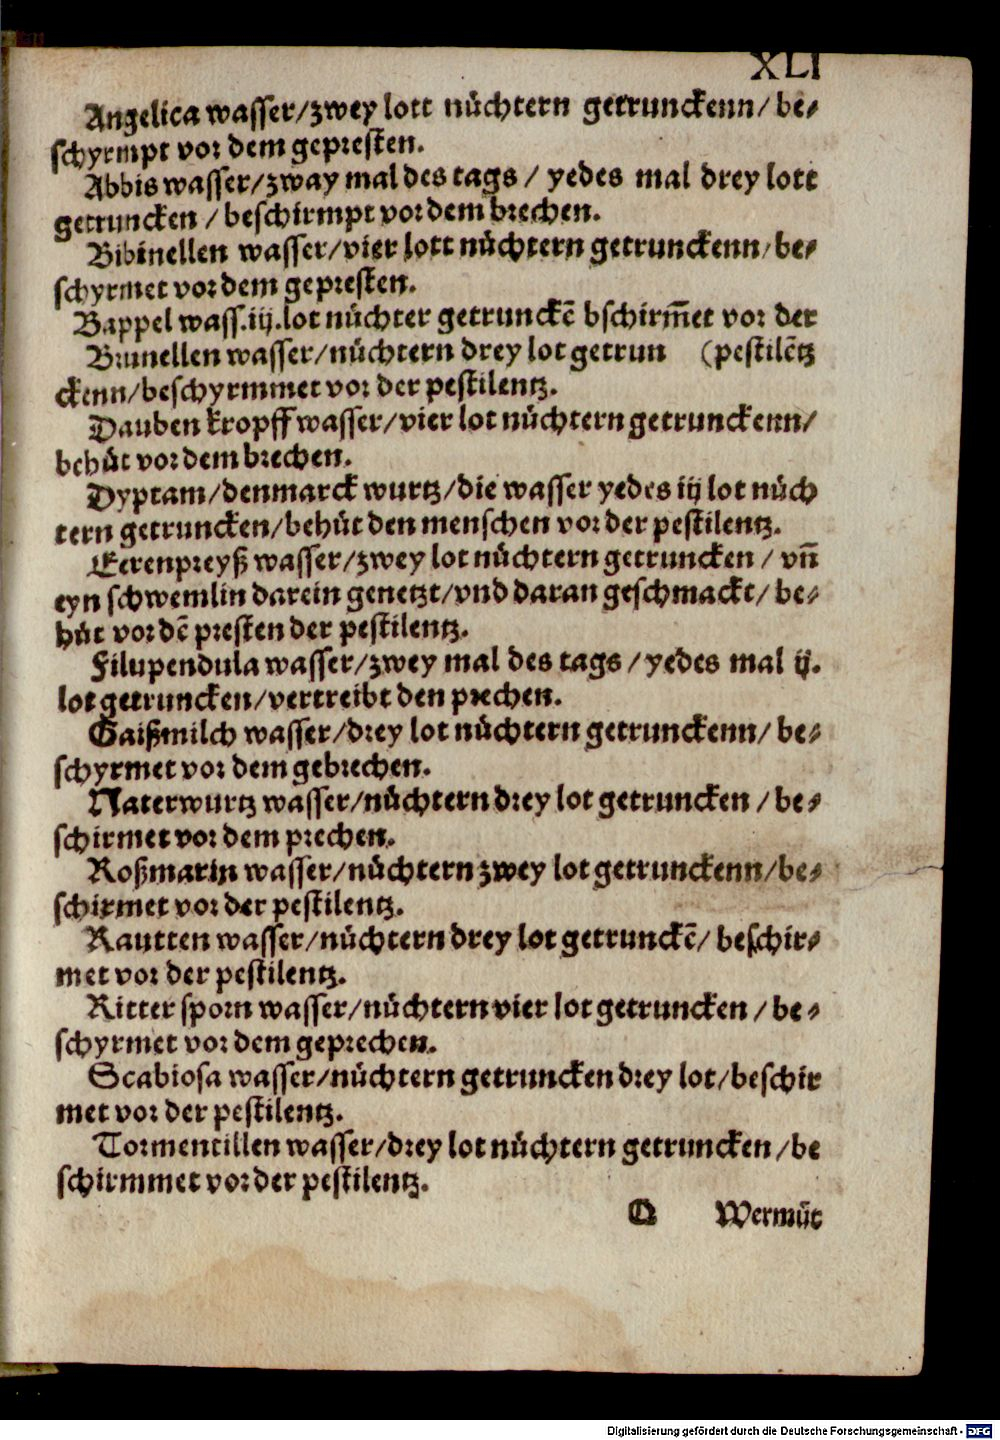 XLI
Angelica wasser/zwey lott nůchtern getrunckenn/be⸗
schyrmpt vor dem gepresten.
Abbis wasser/zway mal des tags / yedes mal drey lott
getruncken / beschirmpt vor dem brechen.
Bibinellen wasser/vier lott nůchtern getrunckenn/be⸗
schyrmet vor dem gepresten.
Bappel wass.iij.lot nůchter getrunckẽ bschirm̃et vor der
Brunellen wasser/nůchtern drey lot getrun (pestilẽtz
ckenn/beschyrmmet vor der pestilentz.
Dauben kropff wasser/vier lot nůchtern getrunckenn/
behůt vor dem brechen.
Dyptam/denmarck wurtz/die wasser yedes iij lot nůch
tern getruncken/behůt den menschen vor der pestilentz.
Eerenpreyß wasser/zwey lot nůchtern getruncken / vñ
eyn schwemlin darein genetzt/vnd daran geschmackt/ be⸗
hůt vor dẽ presten der pestilentz.
Filupendula wasser/zwey mal des tags / yedes mal ij.
lot getruncken/vertreibt den prechen.
Gaißmilch wasser/drey lot nůchtern getrunckenn/ be⸗
schyrmet vor dem gebrechen.
Naterwurtz wasser/nůchtern drey lot getruncken / be⸗
schirmet vor dem prechen.
Roßmarin wasser/nůchtern zwey lot getrunckenn/be⸗
schirmet vor der pestilentz.
Rautten wasser/nůchtern drey lot getrunckẽ/ beschir⸗
met vor der pestilentz.
Ritter sporn wasser/nůchtern vier lot getruncken / be⸗
schyrmet vor dem geprechen.
Scabiosa wasser/nůchtern getruncken drey lot/beschir
met vor der pestilentz.
Tormentillen wasser/drey lot nůchtern getruncken /be
schirmmet vor der pestilentz.
Q Wermůt
Digitalisierung gefördert durch die Deutsche Forschungsgemeinschaft - DFG